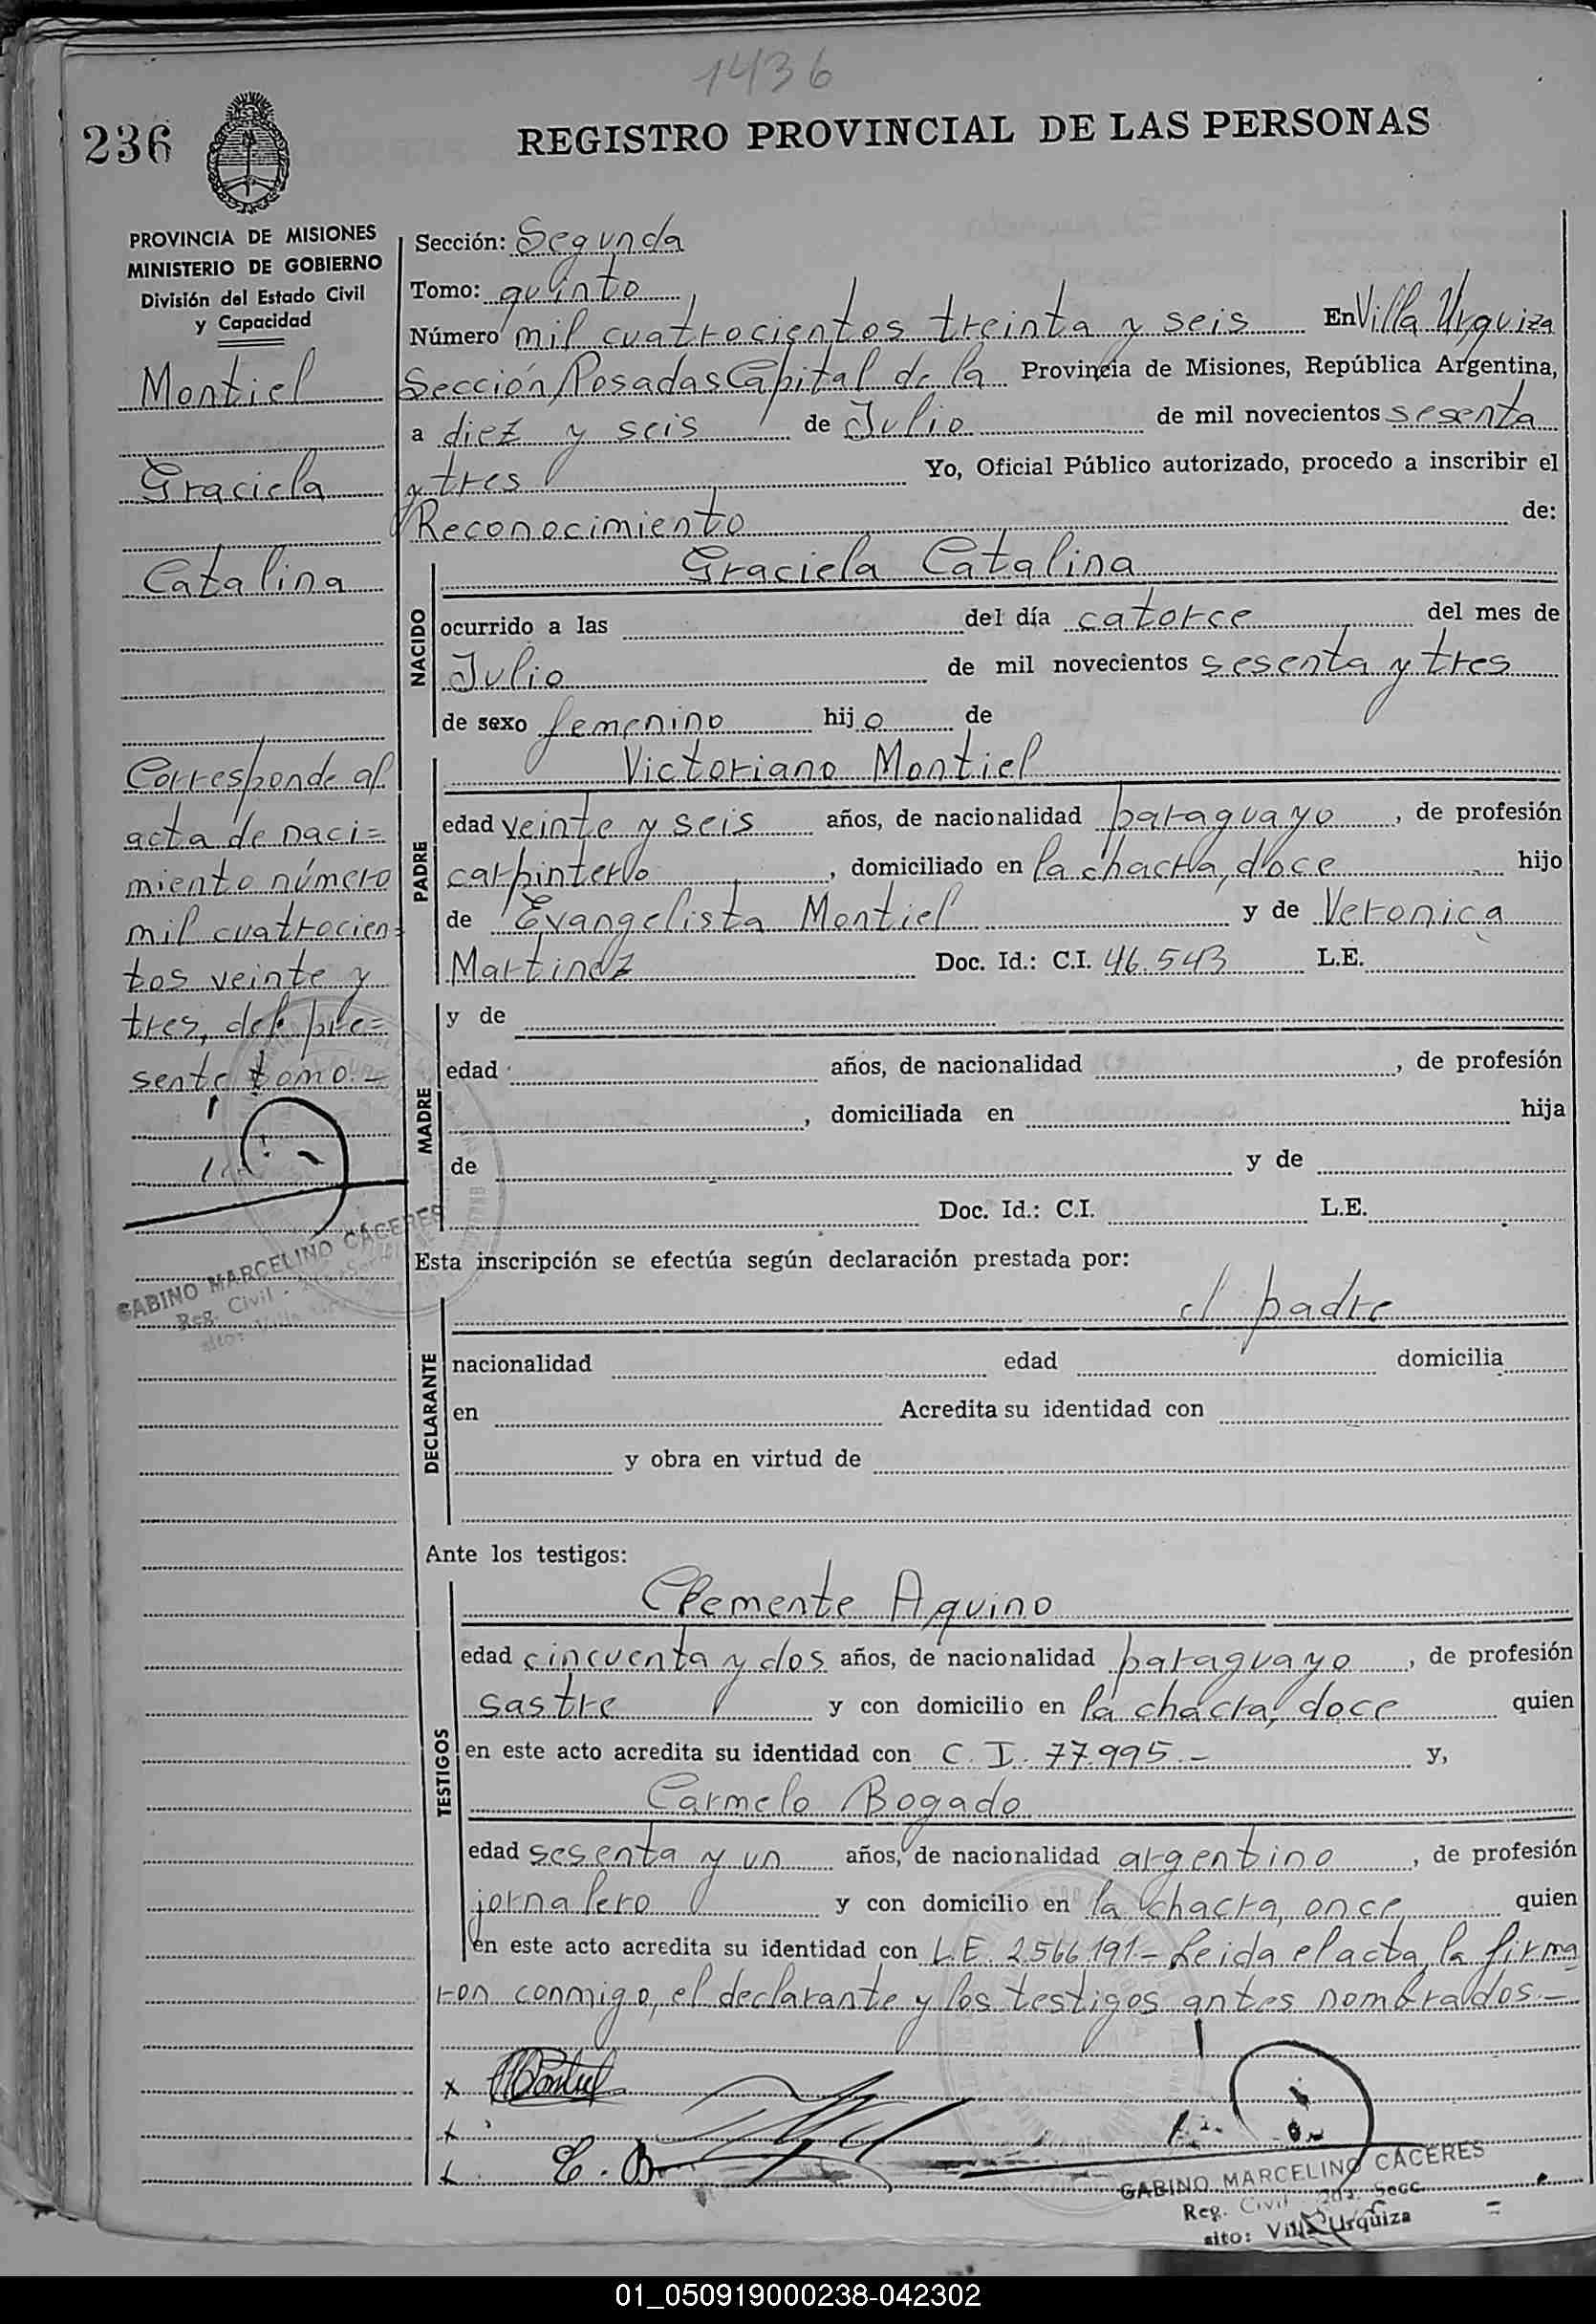 1436
236
REGISTRO PROVINCIAL DE LAS PERSONAS
PROVINCIA DE MISIONES
MINISTERIO DE GOBIERNO
División del Estado Civil
y Capacidad
Montiel
Graciela
Catalina
Corresponde al
acta de naci=
miento número
mil cuatrocien=
tos veinte y
tres, del pre=
sente tomo.-
GABINO MARCELINO CACERES
Reg. Civil -
sito: Villa
Sección: Segunda
Tomo: quinto
Número mil cuatrocientos treinta y seis En Villa Urquiza
Sección, Posadas Capital de la Provincia de Misiones, República Argentina,
a diez y seis de Julio de mil novecientos sesenta
y tres Yo, Oficial Público autorizado, procedo a inscribir el
Reconocimiento de:
NACIDO
Graciela Catalina
ocurrido a las del día catorce del mes de
Julio de mil novecientos sesenta y tres
de sexo femenino hijo de
PADRE
Victoriano Montiel
edad veinte y seis años, de nacionalidad paraguayo, de profesión
carpintero, domiciliado en la chacra, doce hijo
de Evangelista Montiel y de Veronica
Martinez Doc. Id.: C.I. 46.543 L.E.
MADRE
y de
edad años, de nacionalidad , de profesión
, domiciliada en hija
de y de
Doc. Id.: C.I. L.E.
Esta inscripción se efectúa según declaración prestada por:
DECLARANTE
el padre
nacionalidad edad domicilia
en Acredita su identidad con
y obra en virtud de
Ante los testigos:
TESTIGOS
Clemente Aquino
edad cincuenta y dos años, de nacionalidad paraguayo, de profesión
sastre y con domicilio en la chacra, doce quien
en este acto acredita su identidad con C. I. 77.995.- y,
Carmelo Bogado
edad sesenta y un años, de nacionalidad argentino, de profesión
jornalero y con domicilio en la chacra, once quien
en este acto acredita su identidad con L.E. 2.566.191.- Leida el acta, la firma
ron conmigo, el declarante y los testigos antes nombrados.-
x Montiel
x
x C. B
GABINO MARCELINO CACERES
Reg. Civil 2da. Secc
sito: Villa Urquiza
01_050919000238-042302